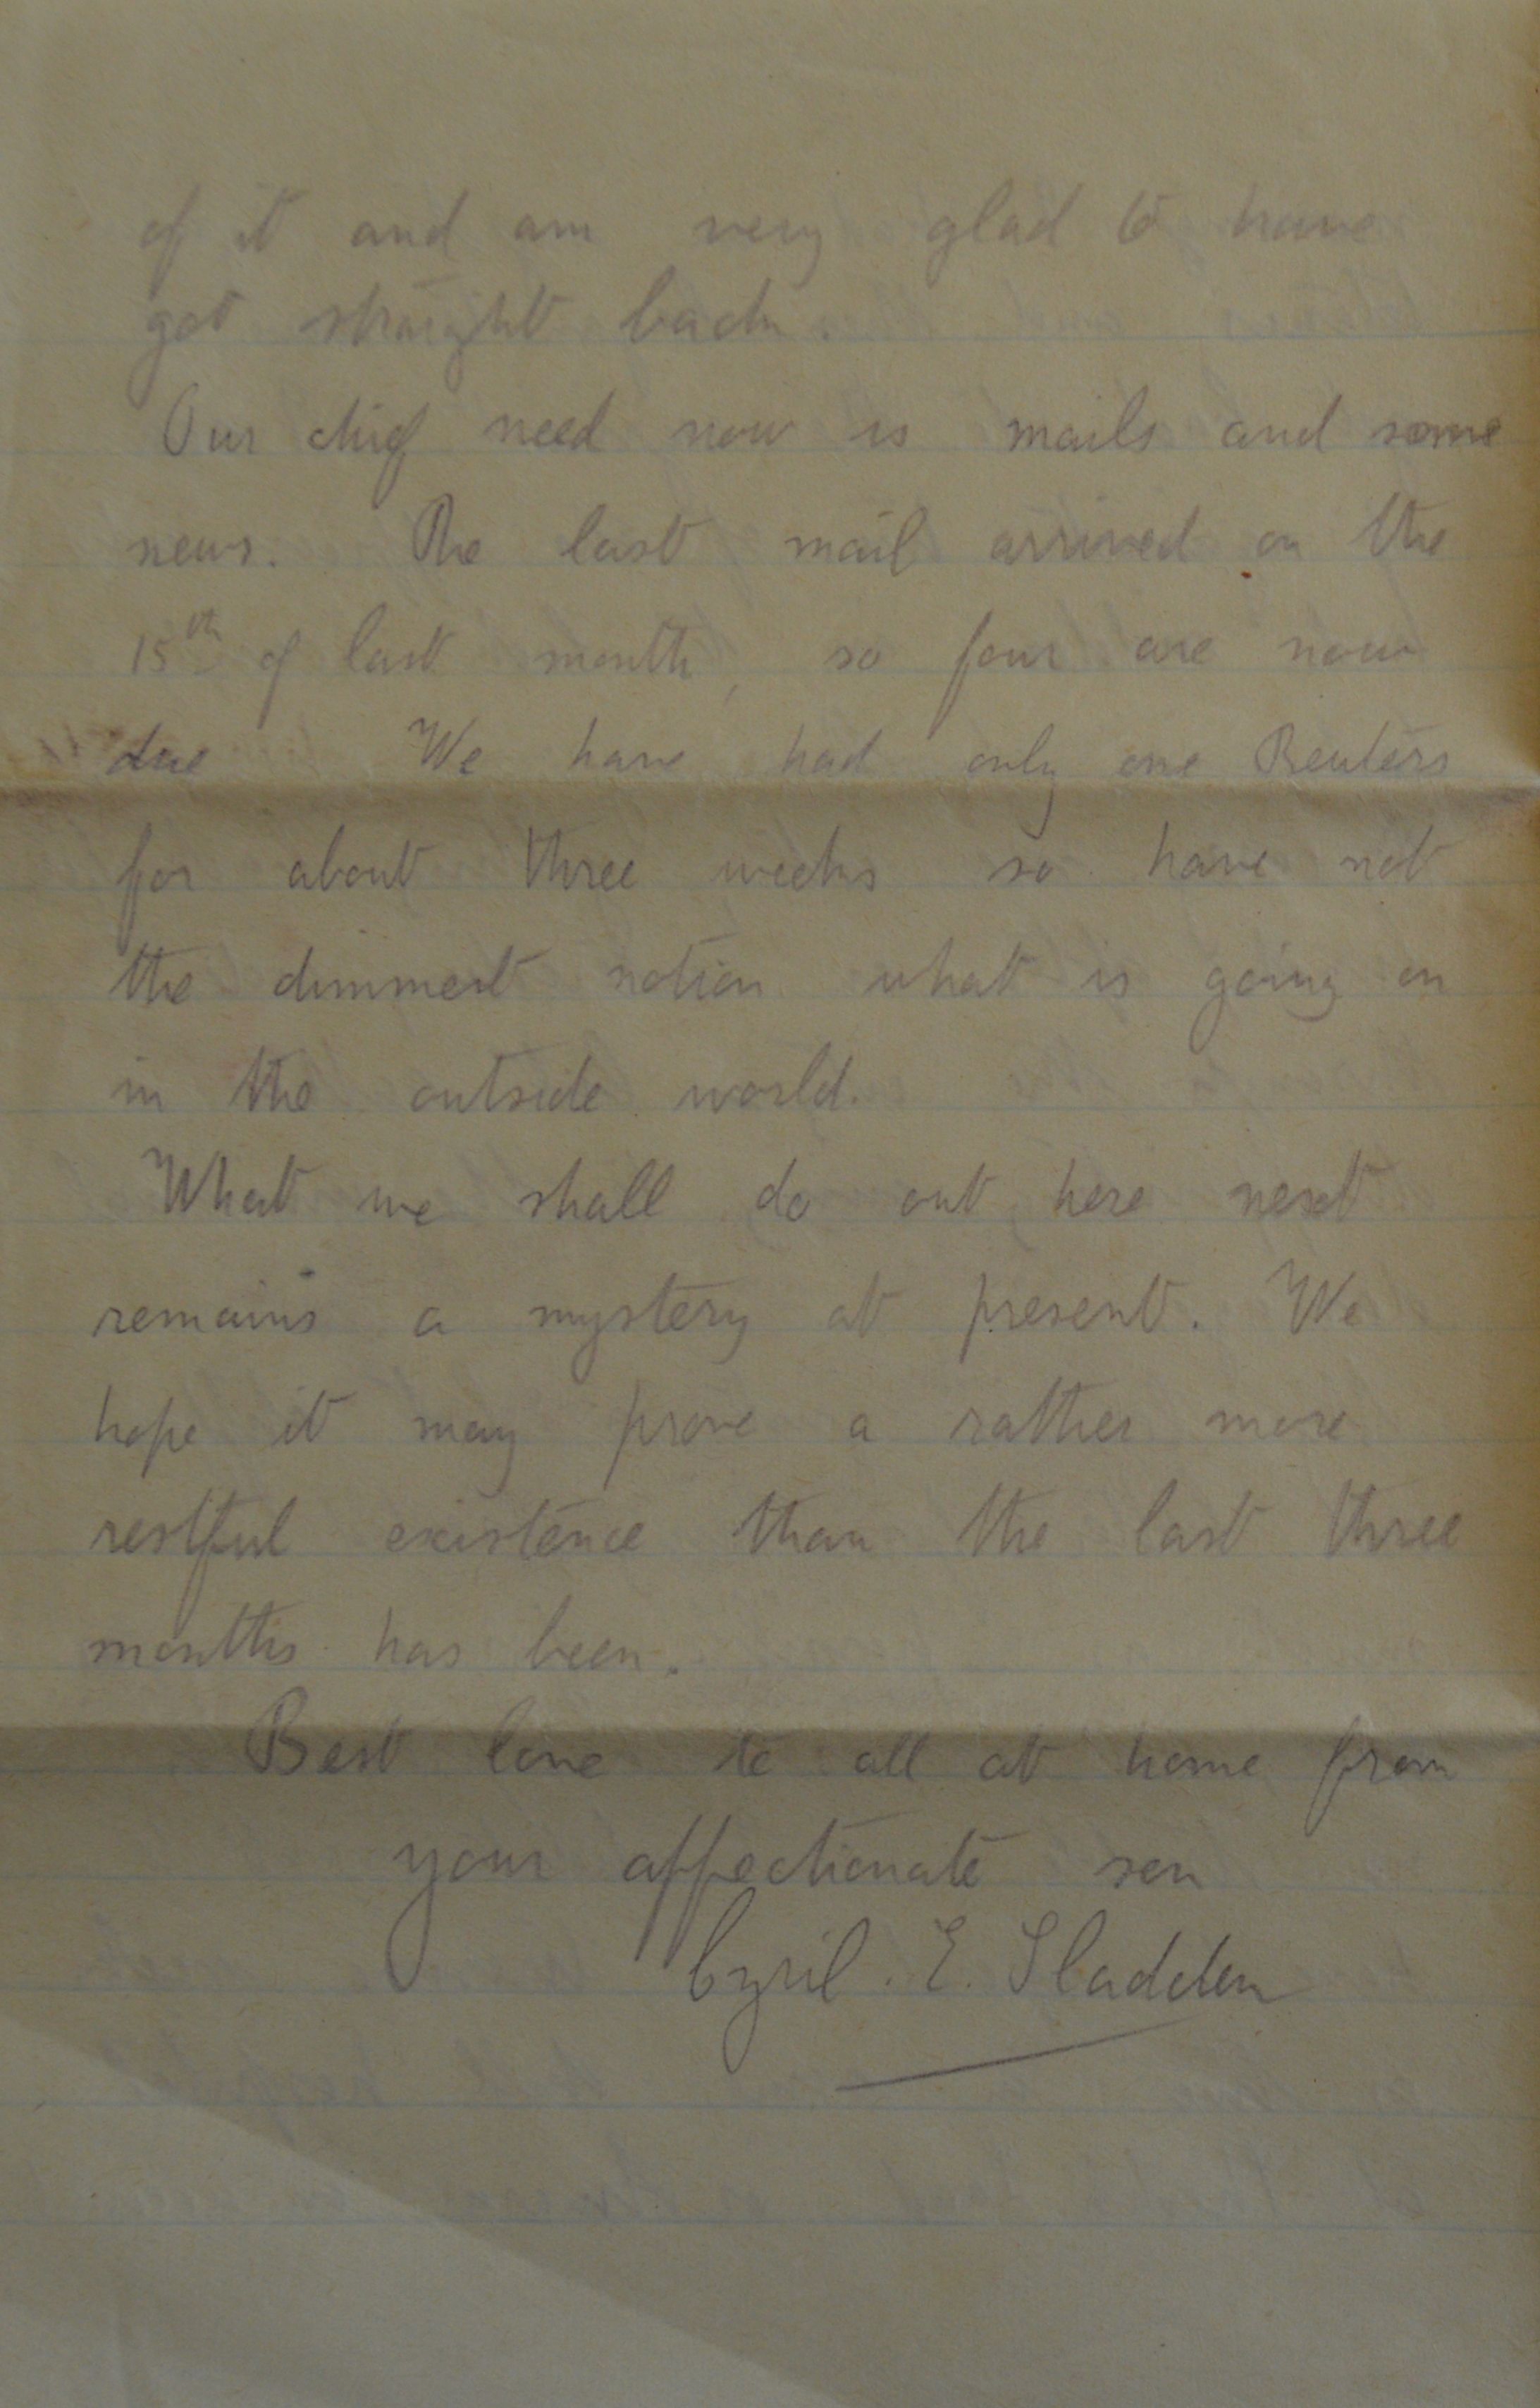 of it and am very glad to have
got straight back.
Our chief need now is mails and some
news. The last mail arrived on the
15th of last month, so four are now
due We have had only one Reuters
for about three weeks so have not
the dimmest notion what is going on
in the outside world.
What we shall do out here next
remains a mystery at present. We
hope it may prove a rather more
restful existence than the last three
months has been.
Best love to all at home from
your affectionate son
Cyril. E. Sladden